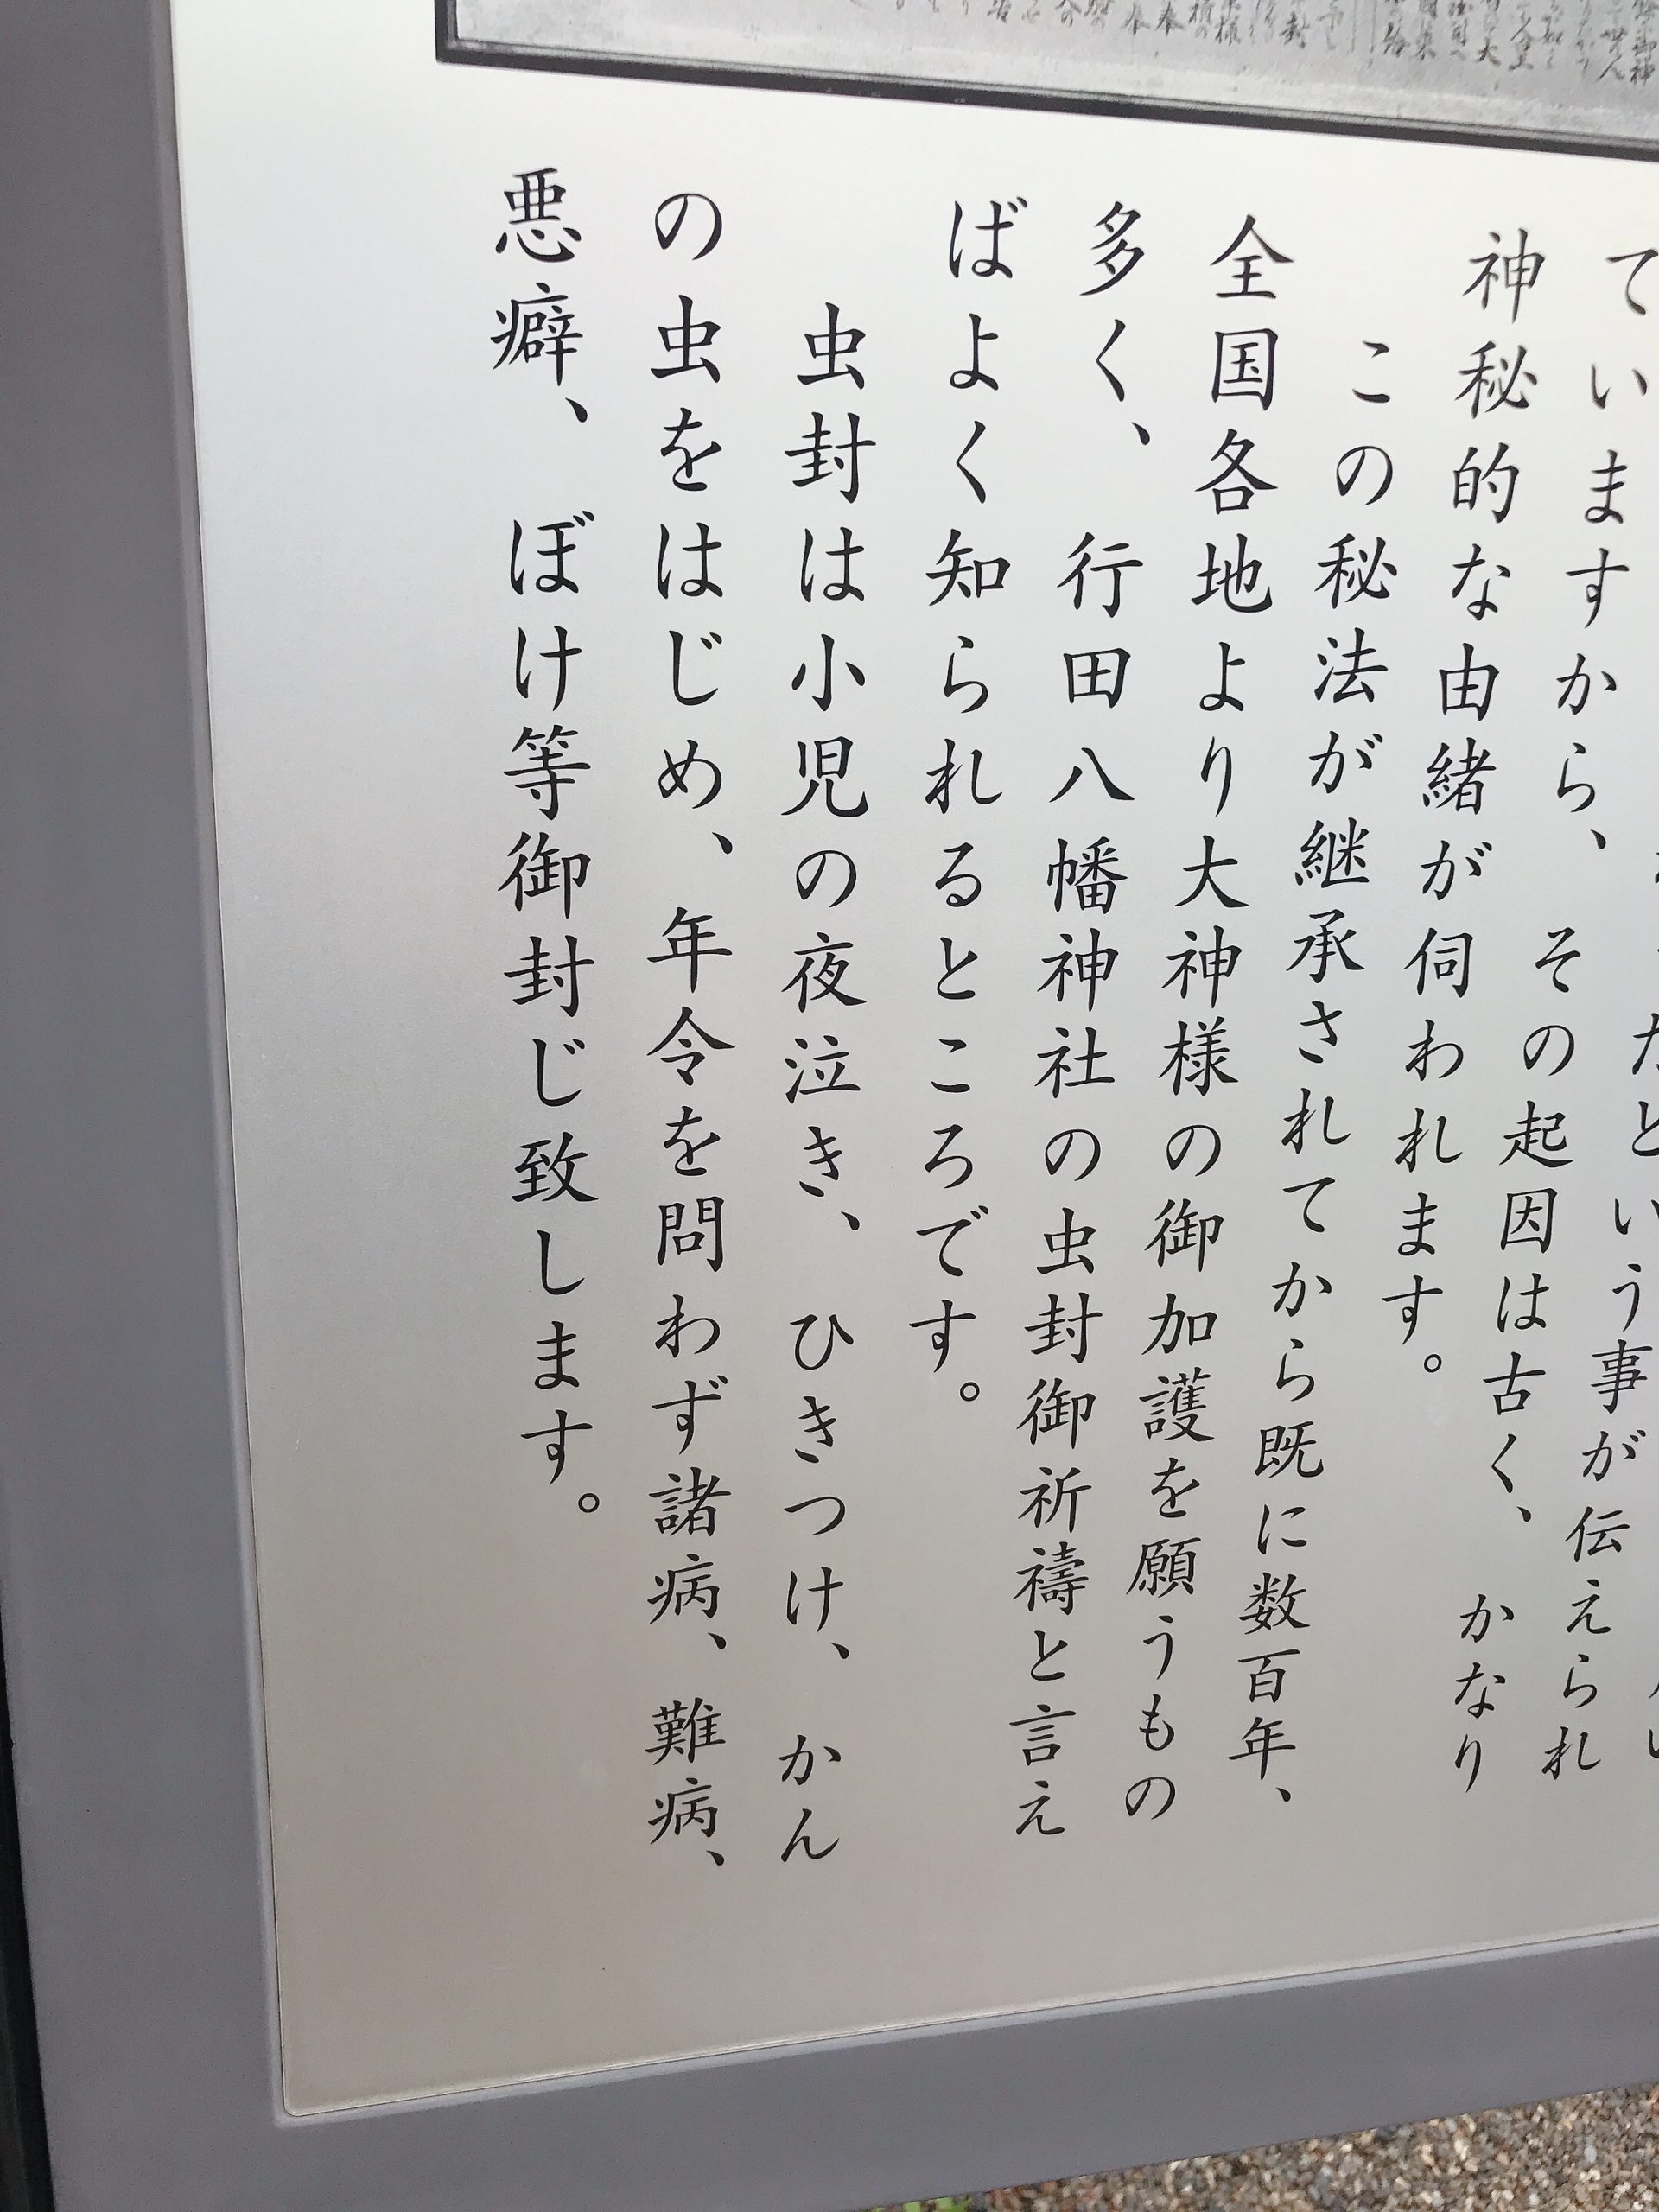 という事が伝えられ
ていますから、その起因は古く、かなり
神秘的な由緒が伺われます。
この秘法が継承されてから既に数百年、
全国各地より大神様の御加護を願うもの
多く、行田八幡神社の虫封御祈祷と言え
ばよく知られるところです。
虫封は小児の夜泣き、ひきつけ、かん
の虫をはじめ、年令を問わず諸病、難病、
悪癖、ぼけ等御封じ致します。